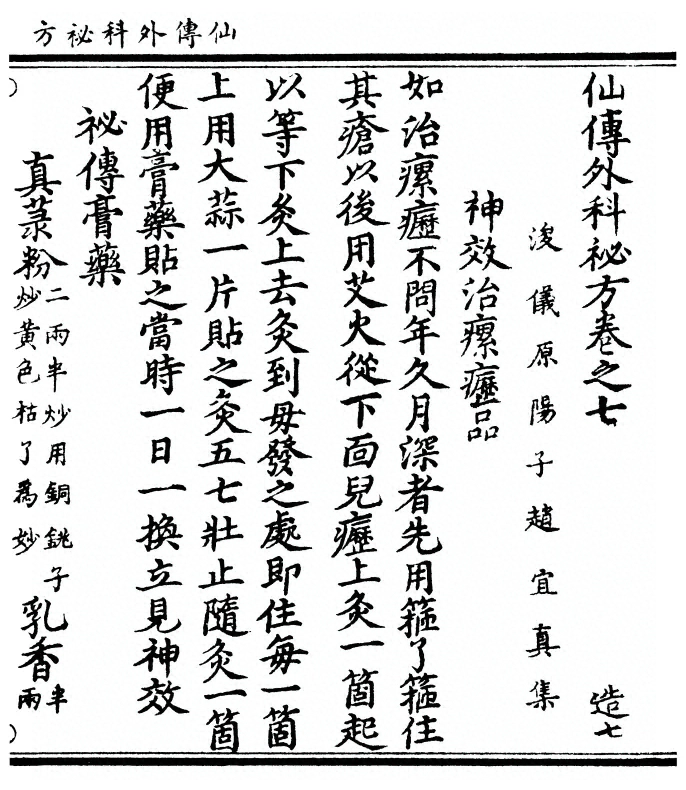 仙傳外科祕方
仙傳外科祕方卷之七　造七
浚儀原陽子趙宜真集
神效治瘰癧品
如治瘰癧不問年久月深者先用箍了箍住
其瘡以後用艾火從下面兒癧上灸一箇起
以等下灸上去灸到毋發之處即住每一箇
上用大蒜一片貼之灸五七壯止隨灸一箇
便用膏藥貼之當時一日一換立見神效
祕傳膏藥
真菉粉二兩半炒用銅銚子炒黃色枯了為妙乳香半兩